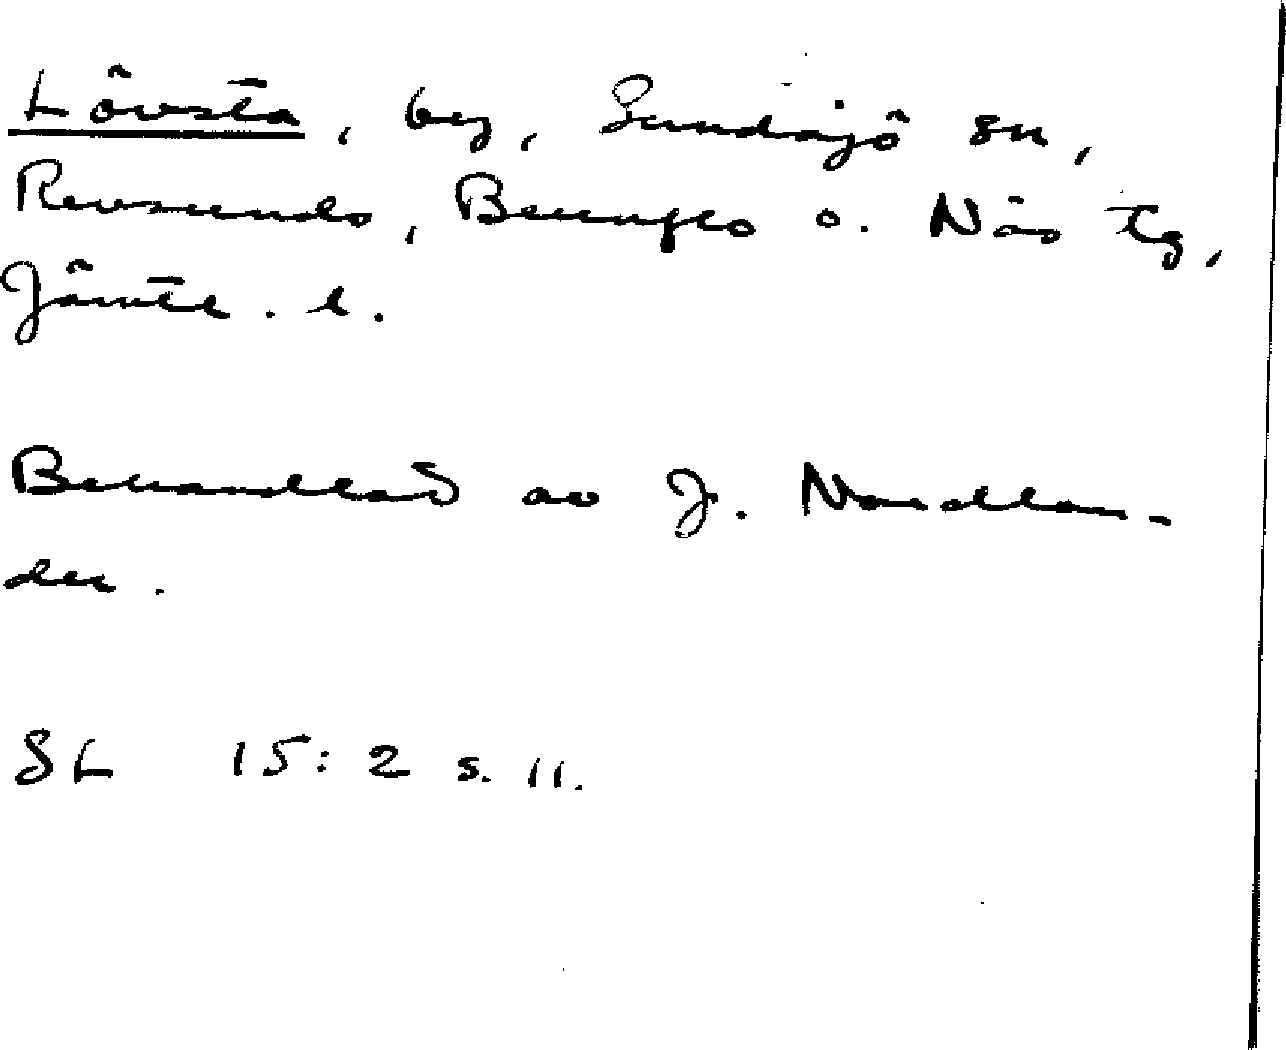 Lövsta, by, Sundsjö sn,
Revsunds, Brunflo o. Näs tg,
Jämtl. l.
Behandlat av J. Nordlan-
der.
SL 15:2 s. 11.